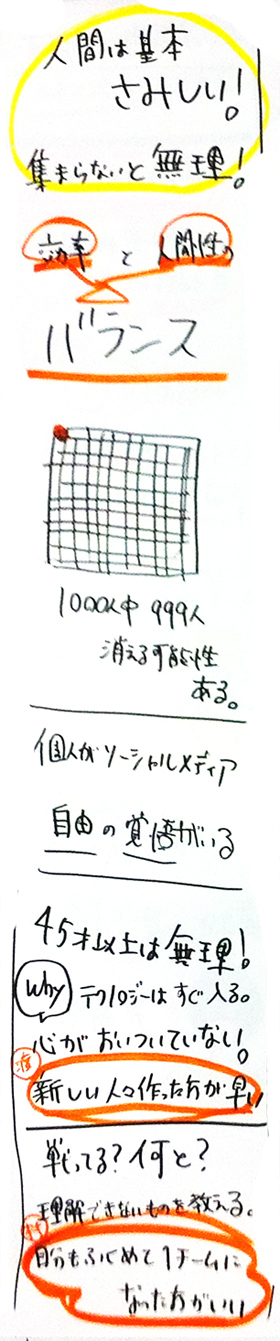 人間は基本
さみしい!
集まらないと無理!
効率と人間性の
バランス
1000人中 999人
消える可能性
ある。
個人がソーシャルメディア
自由の覚悟がいる
45才以上は無理!
Why
テクノロジーはすぐ入る。
心がおいついていない!
新しい人々作った方が早い
戦ってる?何と?
理解できないものを教える。
自分もふくめて1チームに
なった方がいい